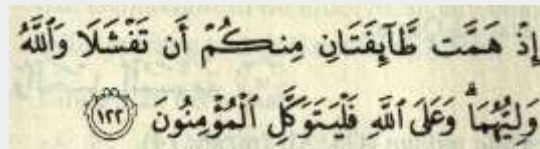 إِذْ هَمَّت طَّآئِفَتَانِ مِنكُمْ أَن تَفْشَلَا وَٱللَّهُ
وَلِيُّهُمَا ۗ وَعَلَى ٱللَّهِ فَلْيَتَوَكَّلِ ٱلْمُؤْمِنُونَ ١٢٢